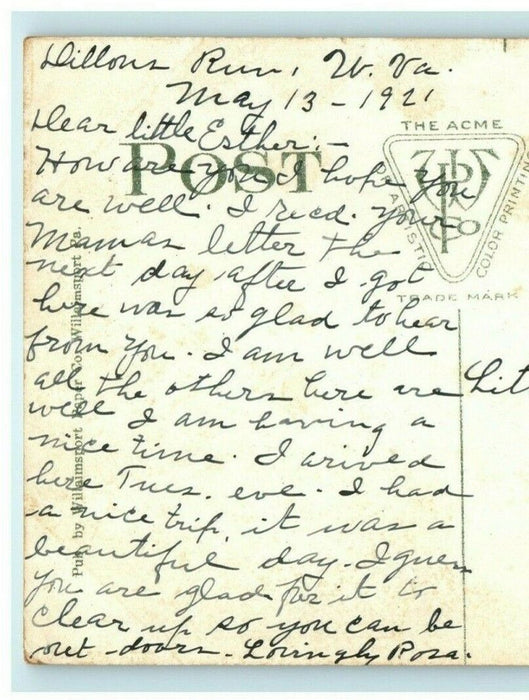 Dillons Run, W. Va.
May 13 - 1921
Dear little Esther: -
How are you I hope you
are well. I recd. your
Mamas letter the
next day after I got
here was so glad to hear
from you. I am well
all the others here are
well I am having a
nice time. I arived
here Tues. eve. I had
a nice trip, it was a
beautiful day. I guess
you are glad for it to
clear up so you can be
out-doors - Lovingly Rosa.
Lit
POST
THE ACME
ARTISTIC
COLOR PRINTIN
TRADE MARK
Pub. by Williamsport Paper Co. Williamsport Pa.